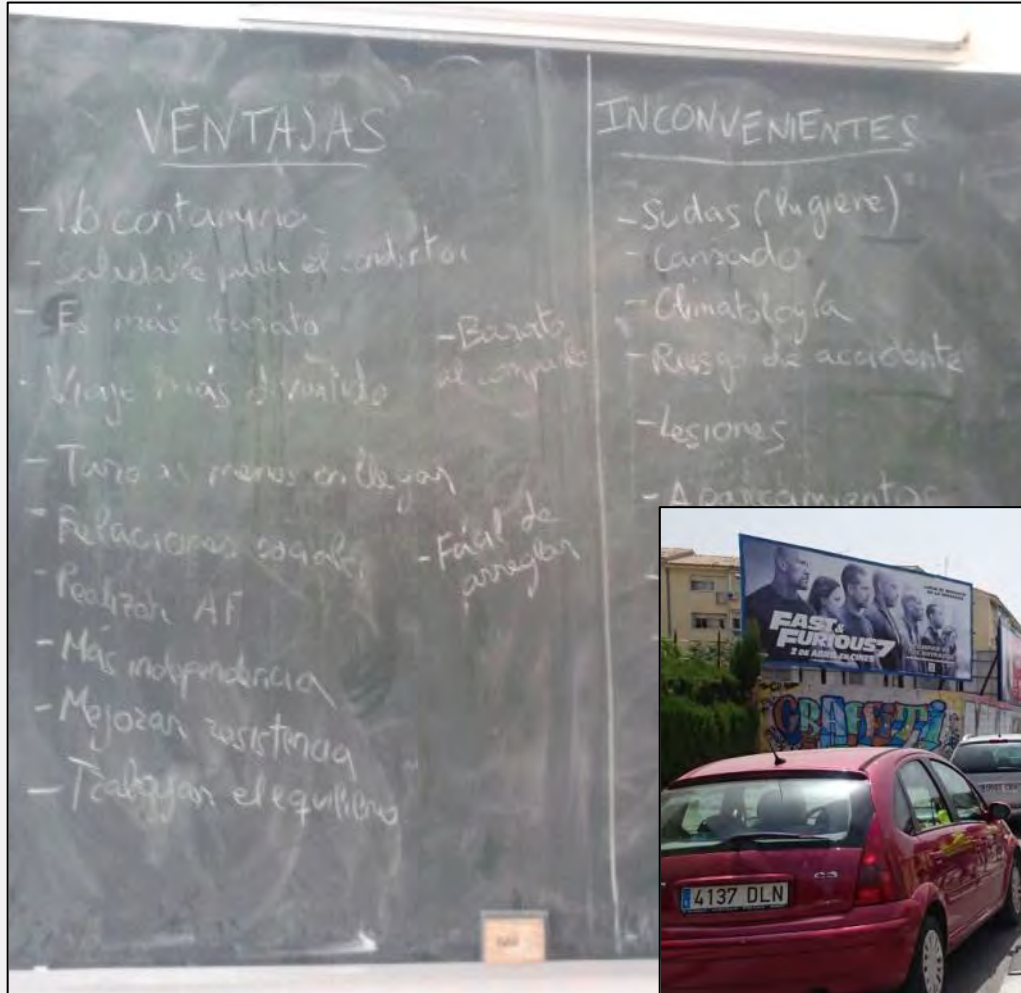 VENTAJAS
- No contamina
- saludable para el conductor
- Es más barato
- Viaje más divertido
- Tardas menos en llegar
- Relaciones sociales
- Realizar AF
- Más independencia
- Mejorar resistencia
- Trabajar el equilibrio
- Barato
al comprarla
- Fácil de
arreglar
INCONVENIENTES
- Sudas (higiene)
- Cansado
- Climatología
- Riesgo de accidente
- Lesiones
- Aparcamientos
FAST &
FURIOUS 7
2 DE ABRIL EN CINES
GRAFFITI
C3
4137 DLN